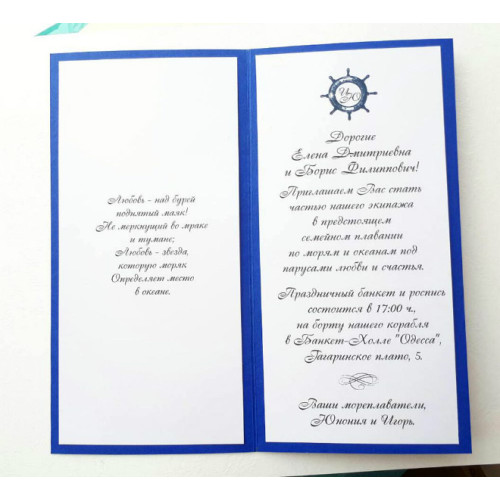 Любовь - над бурей
поднятый маяк!
Не меркнущий во мраке
и тумане;
Любовь - звезда,
которую моряк
Определяет место
в океане.
И Ю
Дорогие
Елена Дмитриевна
и Борис Филиппович!
Приглашаем Вас стать
частью нашего экипажа
в предстоящем
семейном плавании
по морям и океанам под
парусами любви и счастья.
Праздничный банкет и роспись
состоится в 17:00 ч.,
на борту нашего корабля
в Банкет-Холле "Одесса",
Гагаринское плато, 5.
Ваши мореплаватели,
Юнония и Игорь.